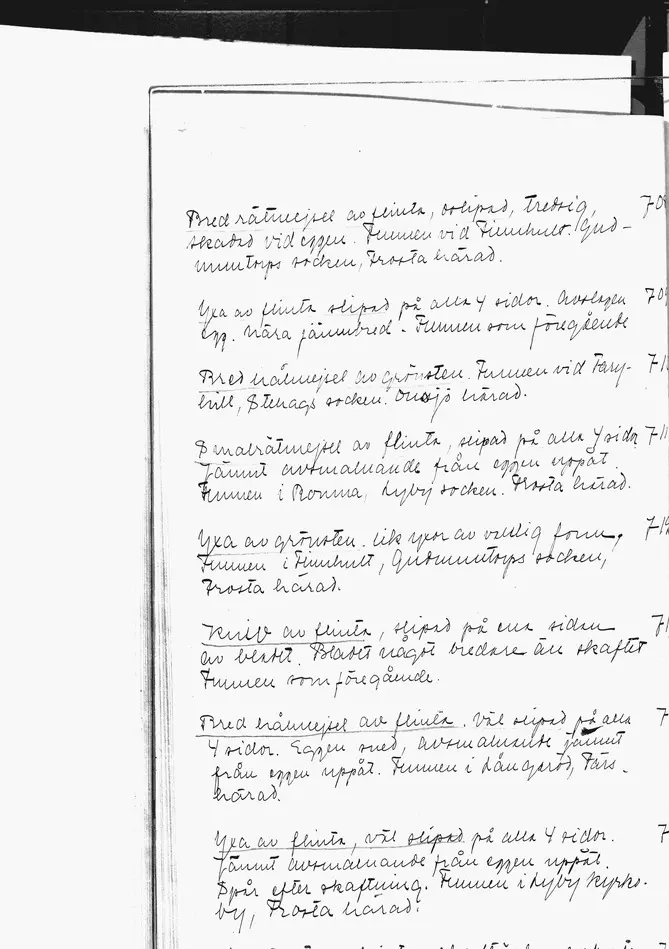 Bred rätmejsel av flinta, oslipad, tresidig, 70
skadad vid eggen. Funnen vid Finnhult. Gud-
muntorps socken, Frosta härad.
Yxa av flinta slipad på alla 4 sidor. Avslagen 70
egg. Nära jämnbred. Funnen som föregående
Bred hålmejsel av grönsten. Funnen vid 71
hill, Stehags socken. Onsjö härad.
Smalrätmejsel av flinta, slipad på alla 4 sidor 711
Jämnt avsmalnande från eggen uppåt.
Funnen i Bonma, Lyby socken. Frosta härad.
Yxa av grönsten. lik yxor av vanlig form, 712
Funnen i Finnhult, Gudmuntorps socken,
Frosta härad.
Kniv av flinta, slipad på ena sidan 71
av bladet. Bladet något bredare än skaftet
Funnen som föregående.
Bred hålmejsel av flinta. Väl slipad på alla 7
4 sidor. Eggen sned, avsmalnande jämnt
från eggen uppåt. Funnen i Långaröd, Färs
härad.
Yxa av flinta, väl slipad på alla 4 sidor. 7
Jämnt avsmalnande från eggen uppåt.
Spår efter skaftning. Funnen i Lyby kyrko-
by, Frosta härad.